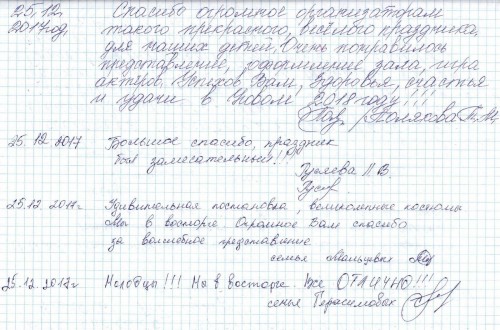 25.12 Спасибо огромное организаторам
2017 год. такого прекрасного, весёлого праздника
для наших детей. Очень понравилось
представление, оформление зала, игра
актёров. Успехов Вам, Здоровья, счастья
и удачи в Новом 2018 году!!!
/Полякова Т.Н.
25.12 2017 Большое спасибо, праздник
был замечательный!!!
Л В.
25.12 2017г Удивительная постановка, великолепные костюмы
Мы в восторге. Огромное Вам спасибо
за волшебное представление
семья
25.12.2017г Молодцы!!! Мы в восторге. Все ОТЛИЧНО!!!
семья Герасимовых